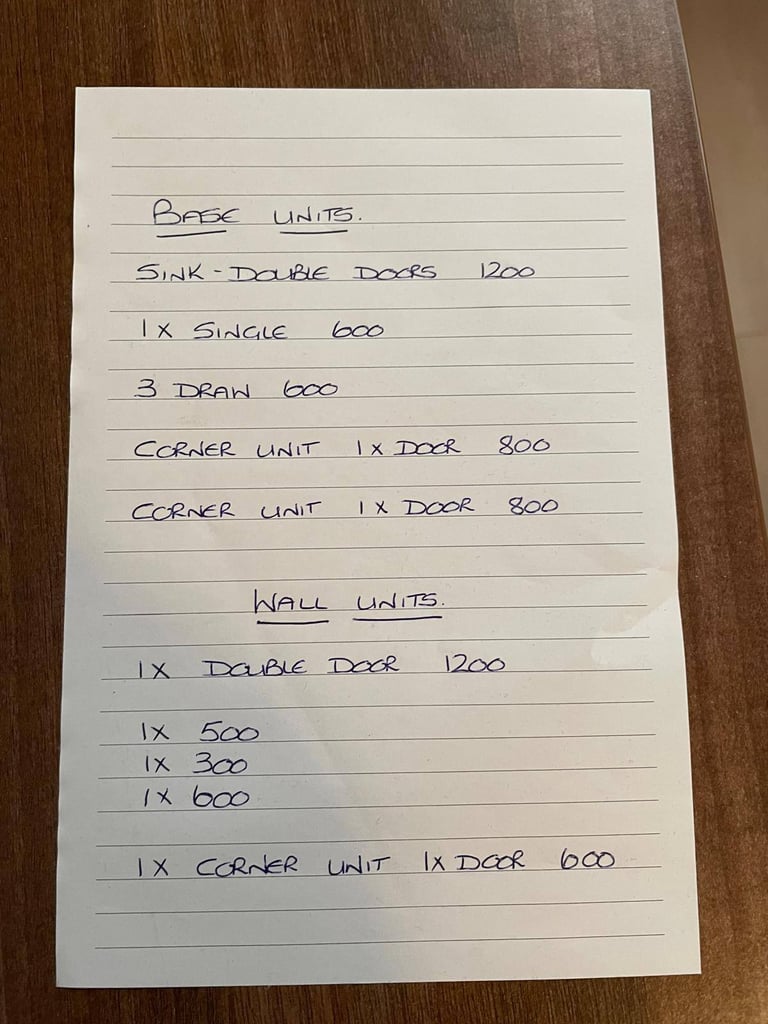 BASE UNITS.
SINK - DOUBLE DOORS 1200
1 X SINGLE 600
3 DRAW 600
CORNER UNIT 1 X DOOR 800
CORNER UNIT 1 X DOOR 800
WALL UNITS.
1X DOUBLE DOOR 1200
1X 500
1X 300
1X 600
1X CORNER UNIT 1X DOOR 600